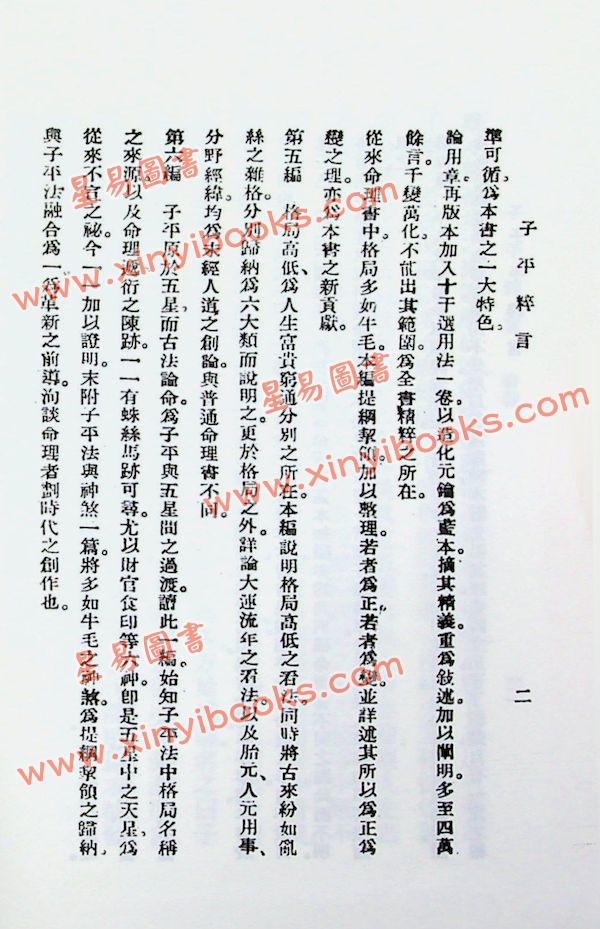 子平粹言
二
準可循。爲本書之一大特色。
論用章再版本加入十干選用法一卷。以造化元鑰爲藍本。摘其精義。重爲敍述。加以闡明。多至四萬
餘言。千變萬化。不能出其範圍。爲全書精粹之所在。
從來命理書中格局多如牛毛。本編提綱挈領。加以整理。若者爲正。若者爲變。並詳述其所以爲正爲
變之理。亦爲本書之新貢獻。
第五編 格局高低。爲人生富貴窮通分別之所在。本編說明格局高低之看法。同時將古來紛如亂
絲之雜格。分別歸納爲六大類而說明之。更於格局之外。詳論大運流年之看法。以及胎元、人元用事、
分野經緯。均爲未經人道之創論。與普通命理書不同。
第六編 子平原於五星。而古法論命。爲子平與五星間之過渡。讀此一編。始知子平法中格局名稱
之來源。以及命理遞衍之陳跡。一一有蛛絲馬跡可尋。尤以財官食印等六神。卽是五星中之天星。爲
從來不宣之祕。今一一加以證明。末附子平法與神煞一篇。將多如牛毛之神煞。爲提綱挈領之歸納。
與子平法融合爲一。爲革新之前導。洵談命理者劃時代之創作也。
星易圖書
www.xinyibooks.com
星易圖書
www.xinyibooks.com
星易圖書
www.xinyibooks.com
星易圖書
www.xinyibooks.com